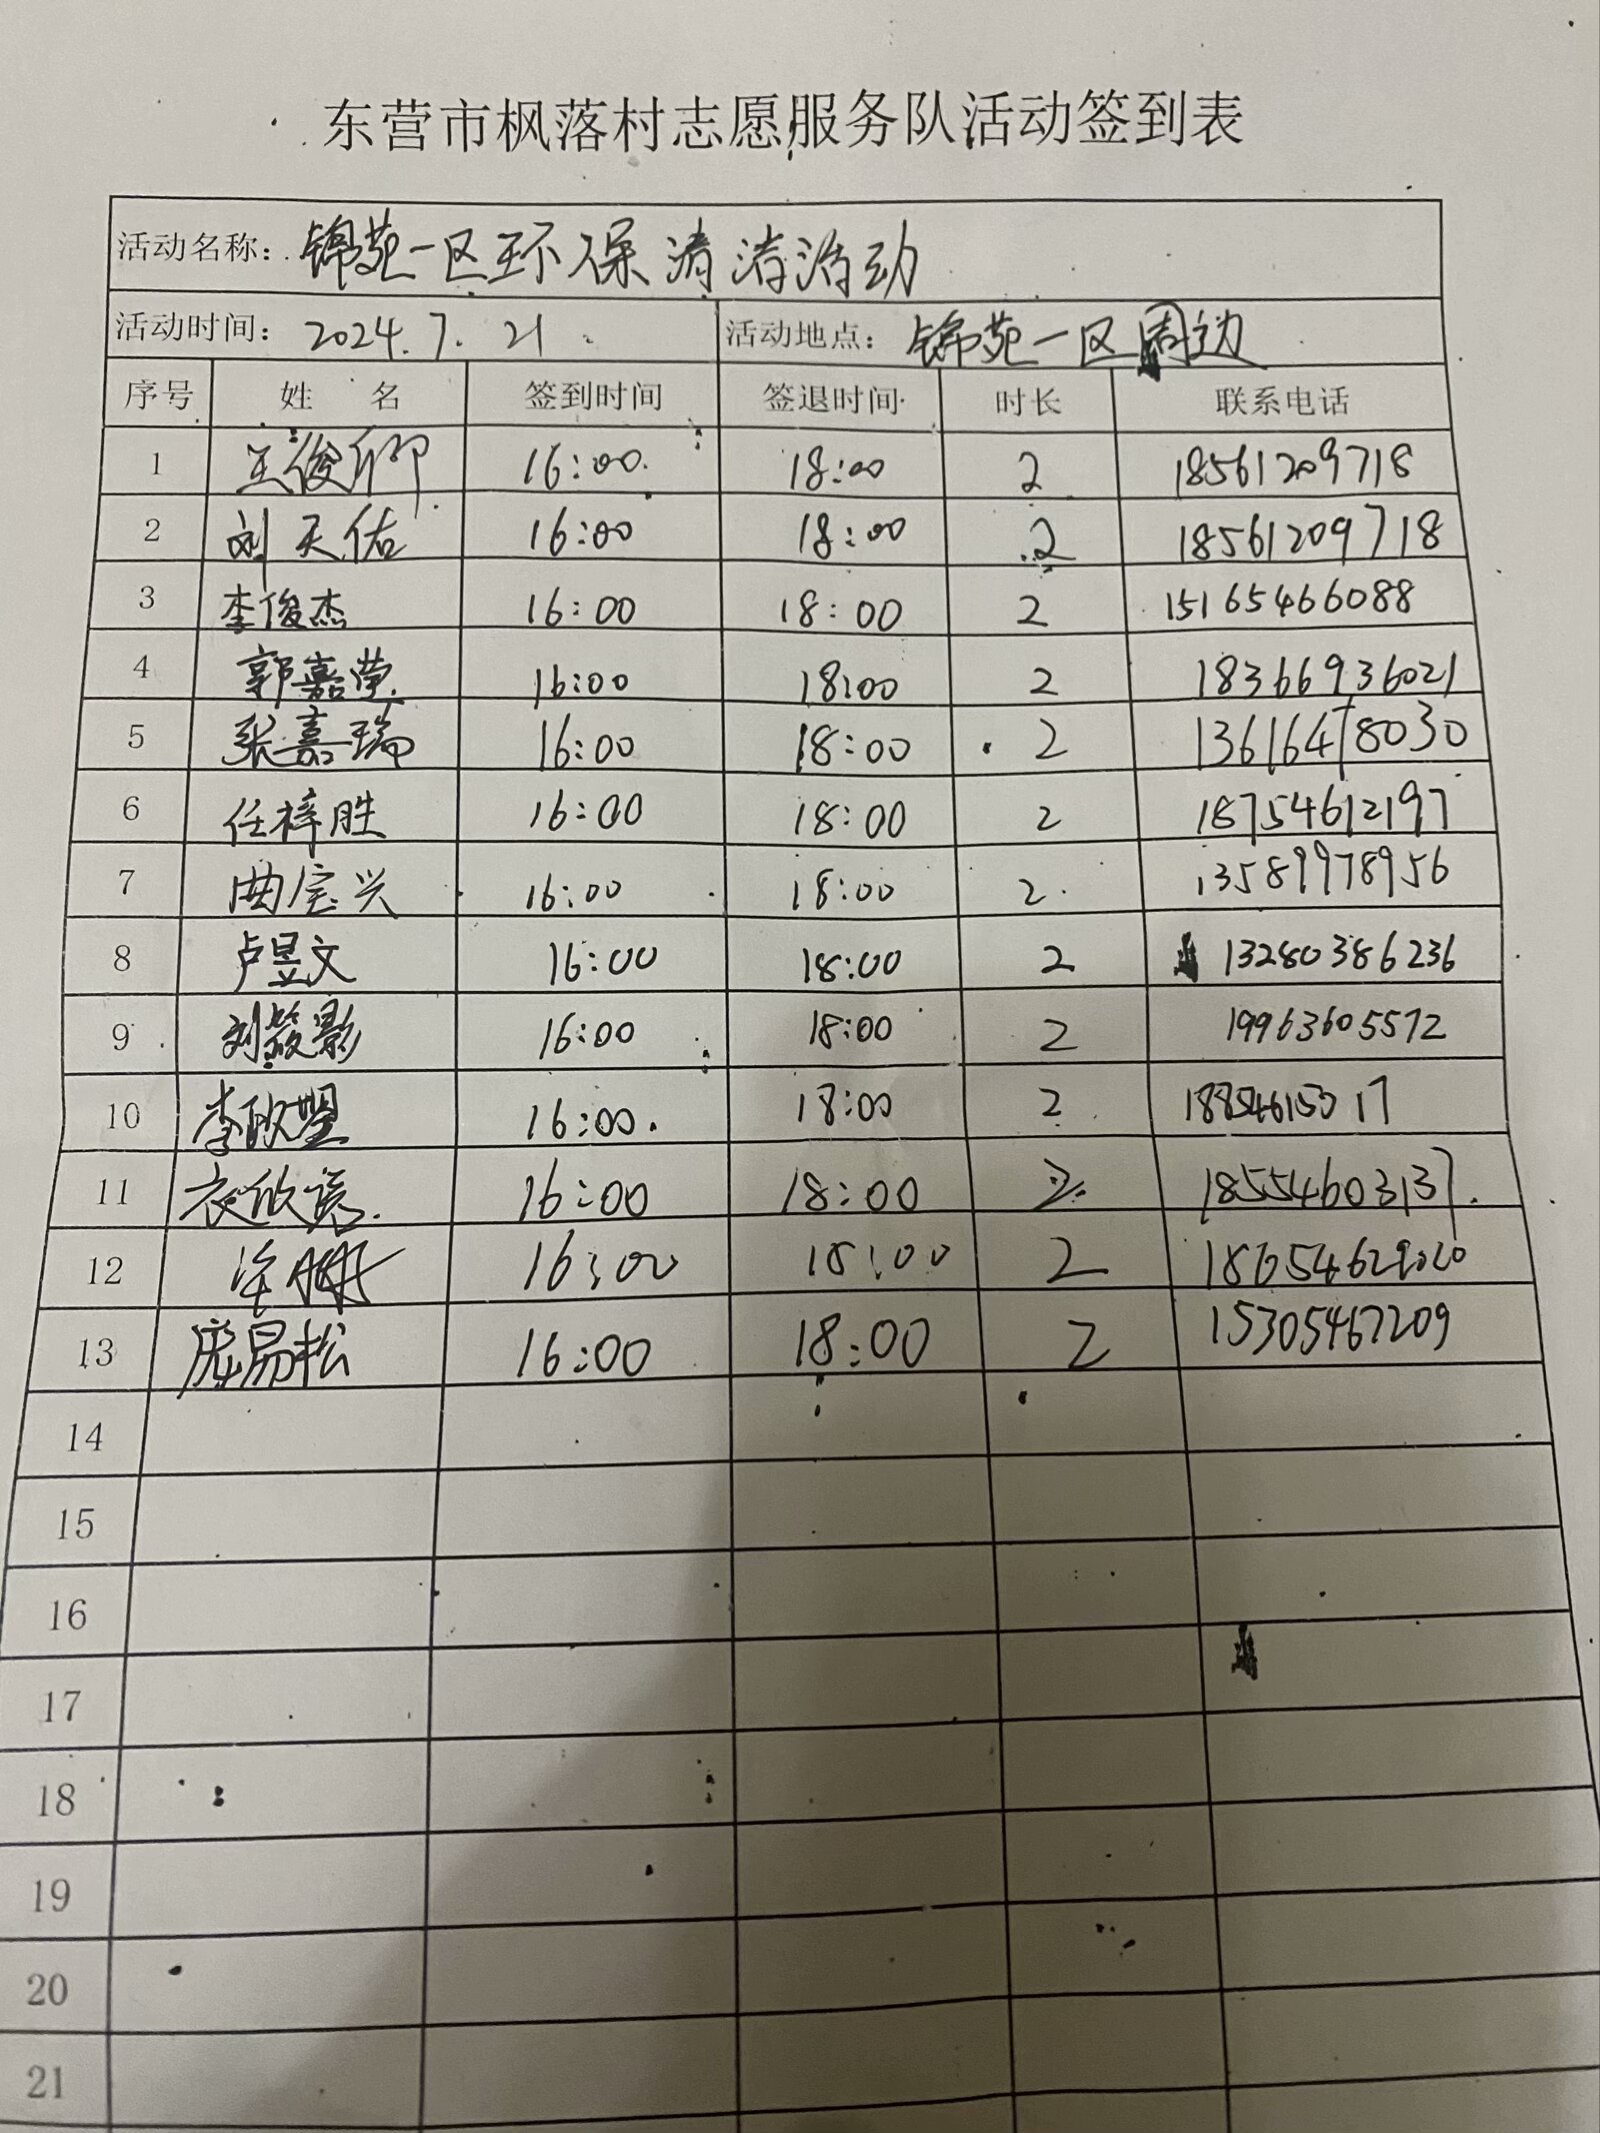 东营市枫落村志愿服务队活动签到表
活动名称：锦苑一区环保清洁活动
活动时间：2024.7.21 活动地点：锦苑一区周边
序号 姓 名 签到时间 签退时间 时长 联系电话
1 王俊卿 16:00 18:00 2 18561209718
2 刘天佑 16:00 18:00 2 18561209718
3 李俊杰 16:00 18:00 2 15165466088
4 郭嘉莹 16:00 18:00 2 18366936021
5 张嘉瑞 16:00 18:00 2 13616478030
6 任梓胜 16:00 18:00 2 18754612197
7 曲宝兴 16:00 18:00 2 13589978956
8 卢昱文 16:00 18:00 2 13280386236
9 刘筱影 16:00 18:00 2 19963605572
10 李 16:00 18:00 2 18854615017
11 衣 16:00 18:00 2 18554603137
12 16:00 18:00 2
13 庞易松 16:00 18:00 2 15305467209
14
15
16
17
18
19
20
21